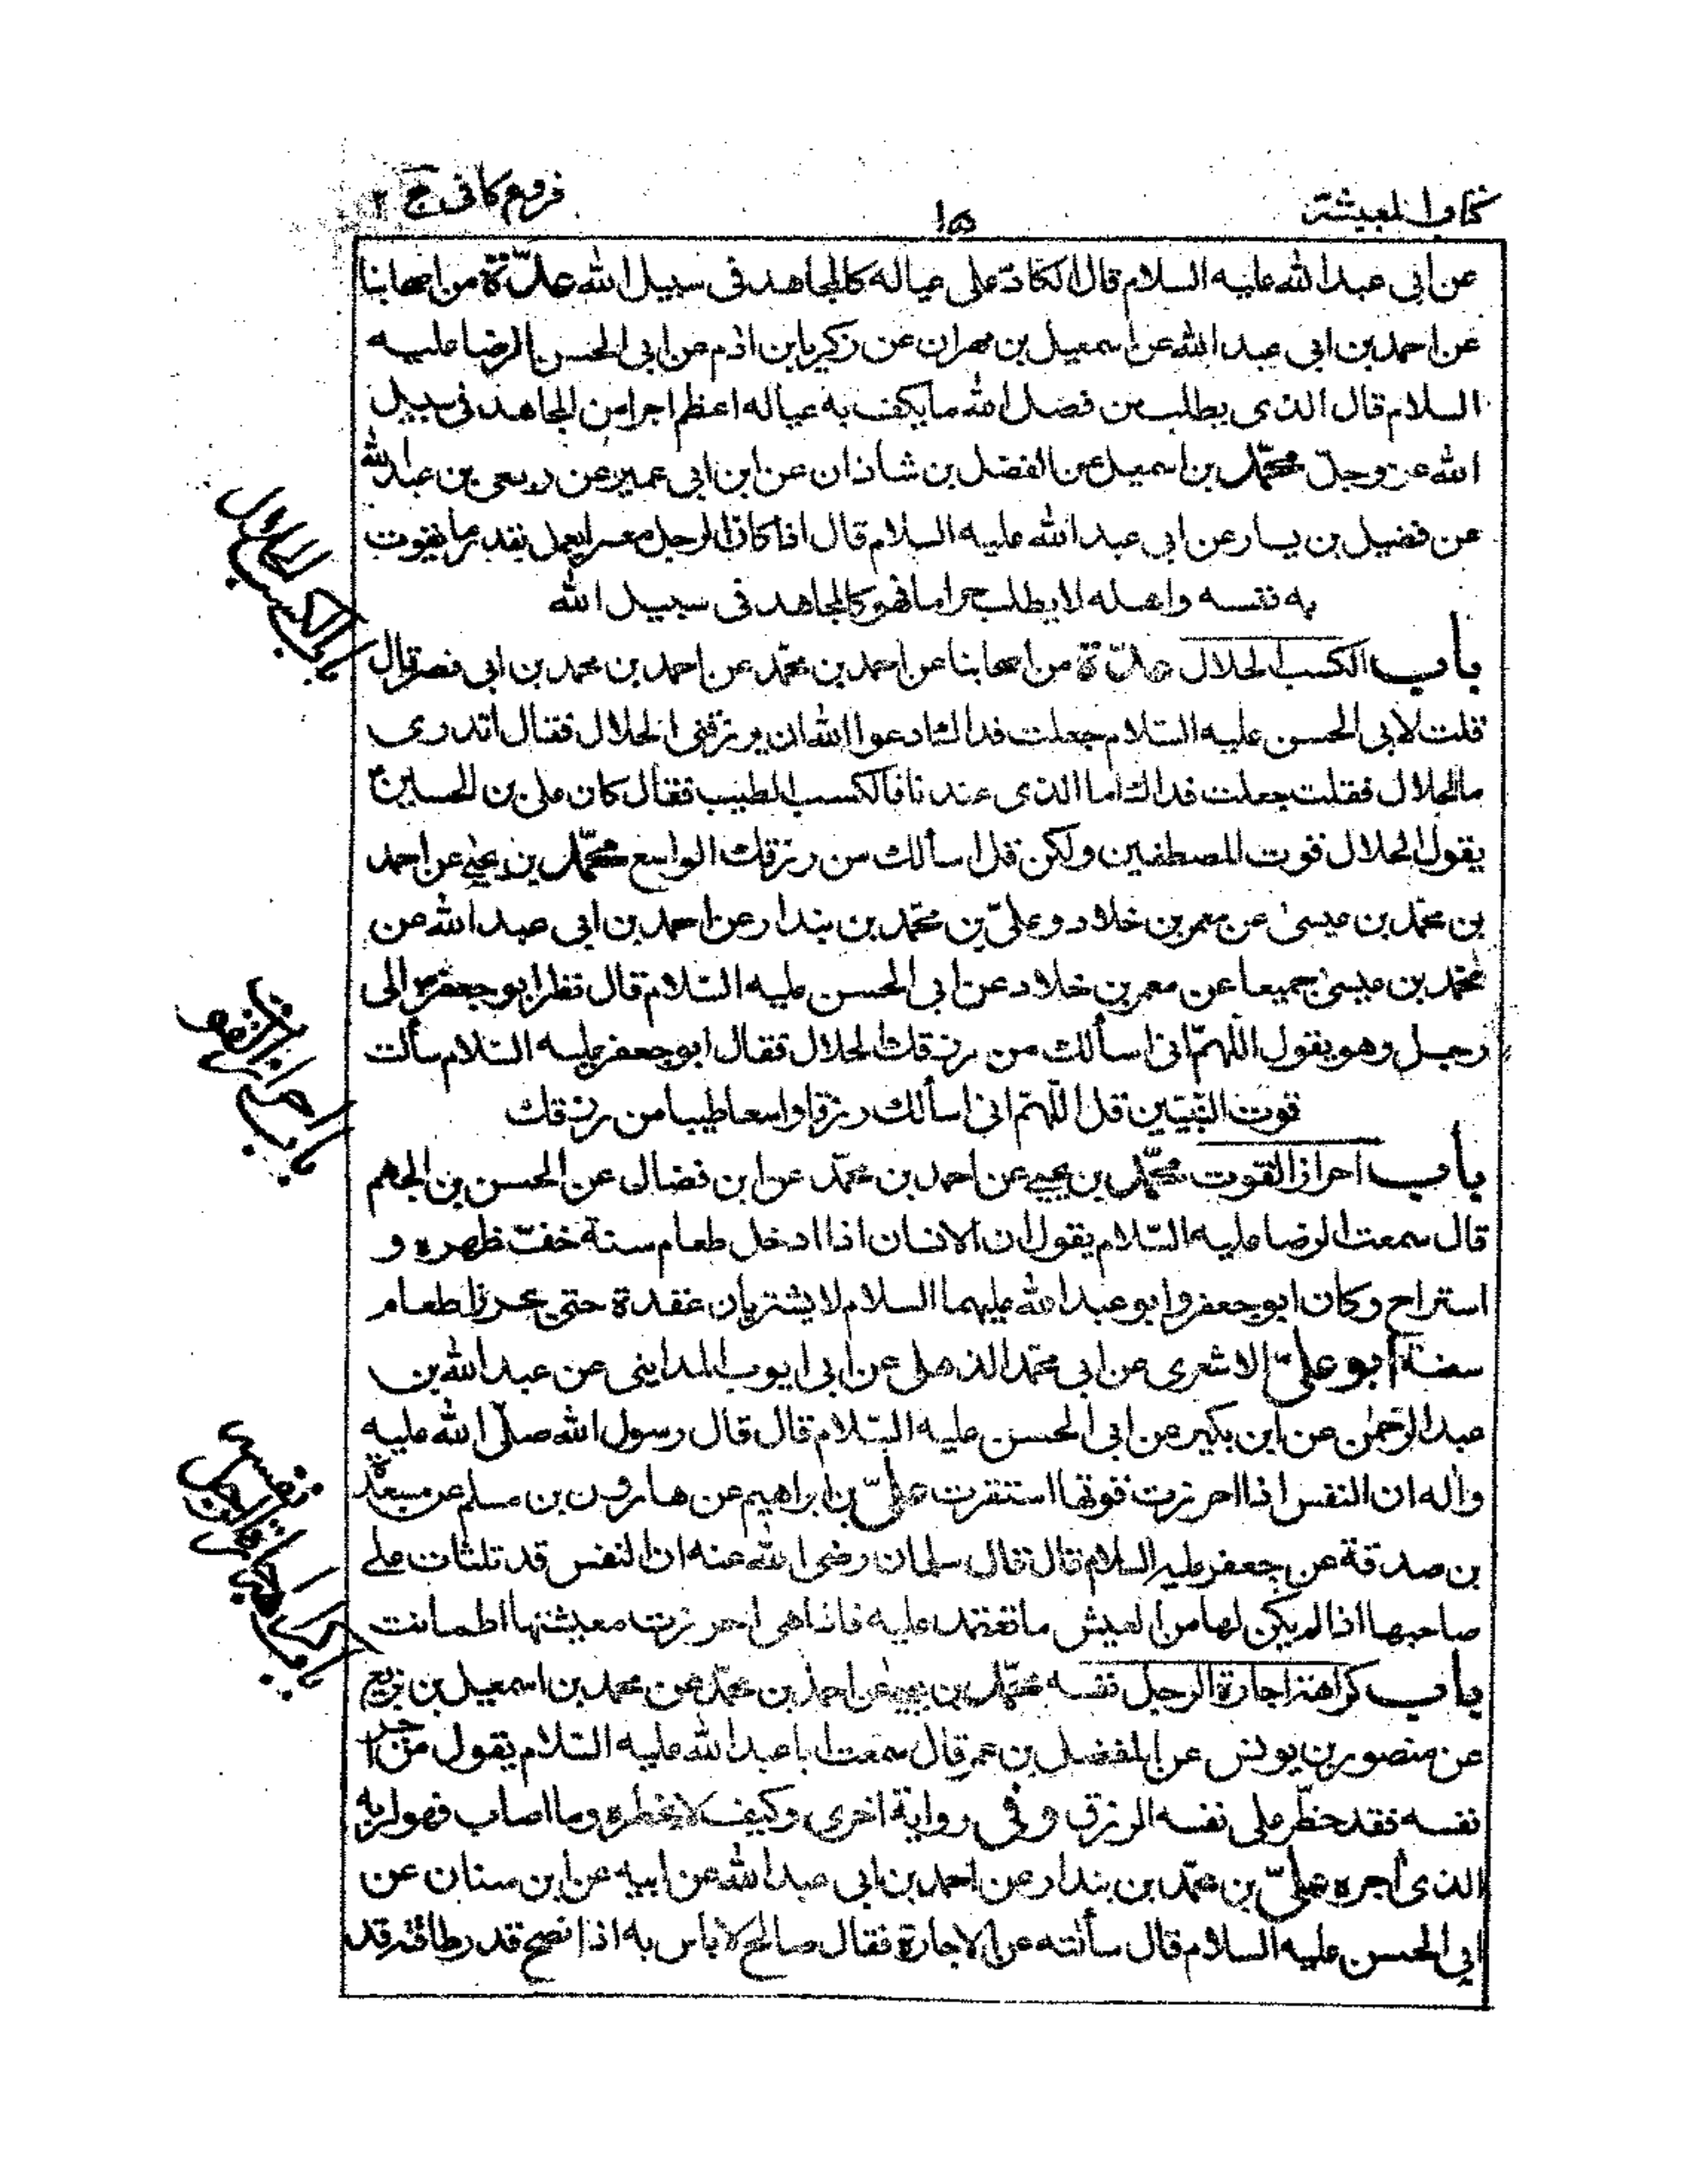 كتاب المعيشة
١٥
فروع كافى ج ٢
عن ابى عبد الله عليه السلام قال الكادّ على عياله كالمجاهد فى سبيل الله عدّة من اصحابنا
عن احمد بن ابى عبد الله عن اسمعيل بن مهران عن زكريا بن ادم عن ابى الحسن الرضا عليه
السلام قال الذى يطلب من فضل الله ما يكف به عياله اعظم اجرا من المجاهد فى سبيل
الله عز وجلّ محمّد بن اسمعيل عن الفضل بن شاذان عن ابن ابى عمير عن ربعى بن عبد الله
عن فضيل بن يسار عن ابى عبد الله عليه السلام قال اذا كان الرجل معسرا يعمل بقدر ما يقوت
به نفسه واهله لا يطلب حراما فهو كالمجاهد فى سبيل الله
باب الكسب الحلال عدّة من اصحابنا عن احمد بن محمّد عن احمد بن محمد بن ابى نصر قال
قلت لابى الحسن عليه السّلام جعلت فداك ادعوا الله ان يرزقنى الحلال فقال اتدرى
ما الحلال فقلت جعلت فداك اما الذى عندنا فالكسب الطيب فقال كان على بن الحسين ع
يقول الحلال قوت المصطفين ولكن قل اسألك من رزقك الواسع محمّد بن يحيى عن احمد
بن محمّد بن عيسى عن معمر بن خلاد وعلىّ بن محمّد بن بندار عن احمد بن ابى عبد الله عن
محمّد بن عيسى جميعا عن معمر بن خلاد عن ابى الحسن عليه السّلام قال نظر ابو جعفر ع الى
رجل وهو يقول اللهمّ انى اسألك من رزقك الحلال فقال ابو جعفر عليه السّلام سألت
قوت النّبيّين قل اللّهمّ انى اسألك رزقا واسعا طيبا من رزقك
باب احراز القوت محمّد بن يحيى عن احمد بن محمّد عن ابن فضال عن الحسن بن الجهم
قال سمعت الرضا عليه السّلام يقول ان الانسان اذا ادخل طعام سنة خفّ ظهره و
استراح وكان ابو جعفر وابو عبد الله عليهما السلام لا يشتريان عقدة حتى يحرزا طعام
سنة أبو علىّ الاشعرى عن ابى محمّد الذهلى عن ابى ايوب المداينى عن عبد الله بن
عبد الرّحمن عن ابن بكير عن ابى الحسن عليه السّلام قال قال رسول الله صلّى الله عليه
واله ان النفس اذا احرزت قوتها استقرت علىّ بن ابراهيم عن هارون بن مسلم عن مسعدة
بن صدقة عن جعفر عليه السلام قال قال سلمان رضى الله عنه ان النفس قد تلتاث على
صاحبها اذا لم يكن لها من العيش ما تعتمد عليه فاذا هى احرزت معيشتها اطمانت
باب كراهة اجارة الرجل نفسه محمّد بن يحيى عن احمد بن محمّد عن محمد بن اسمعيل بن بزيع
عن منصور بن يونس عن المفضل بن عمر قال سمعت ابا عبد الله عليه السّلام يقول من اجر
نفسه فقد حظر على نفسه الرزق وفى رواية اخرى وكيف لا يحظره وما اصاب فهو لربه
الذى أجره علىّ بن محمّد بن بندار عن احمد بن ابى عبد الله عن ابيه عن ابن سنان عن
ابى الحسن عليه السلام قال سألته عن الاجارة فقال صالح لا باس به اذا نصح قدر طاقته قد
باب الكسب الحلال
باب احراز القوت